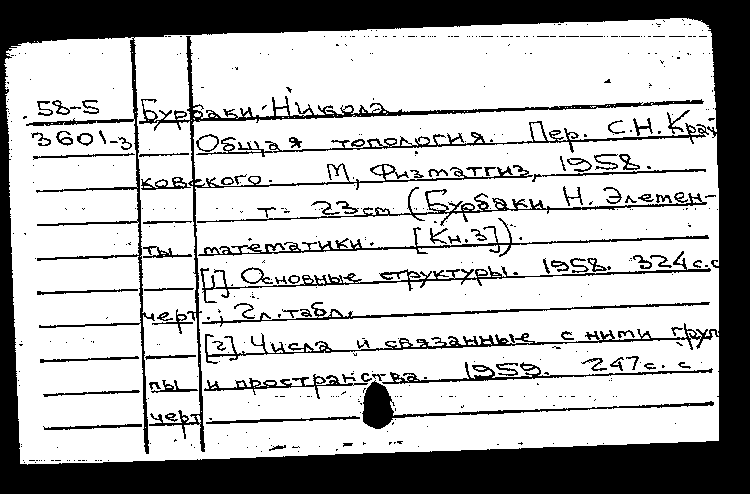 58-5 Бурбаки, Никола.
3601-3 Общая топология. Пер. С.Н. Край-
ковского. М, Физматгиз, 1958.
т= 23 cm (Бурбаки, Н. Элемен-
ты математики. [Кн.3]).
[1]. Основные структуры. 1958. 324 с. с
черт.; 2л. табл.
[2]. Числа и связанные с ними груп
пы и пространства. 1959. 247с. с
черт.